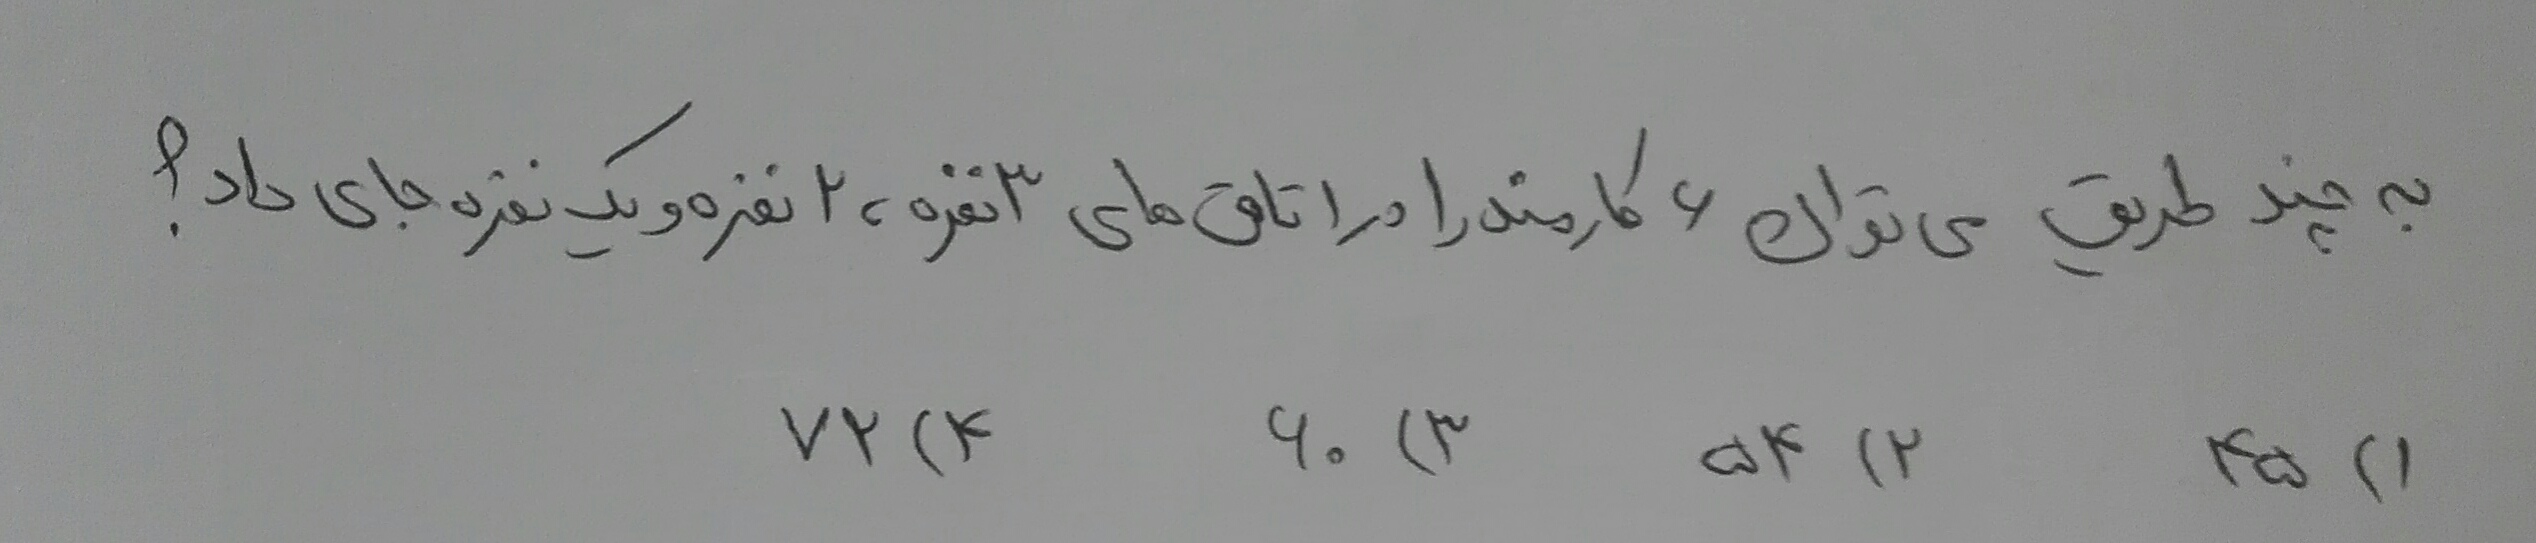 به چند طریق می توان ۶ کارمند را در اتاق های ۳ نفره ، ۲ نفره و یک نفره جای داد ؟
۱) ۴۵ ۲) ۵۴ ۳) ۶۰ ۴) ۷۲